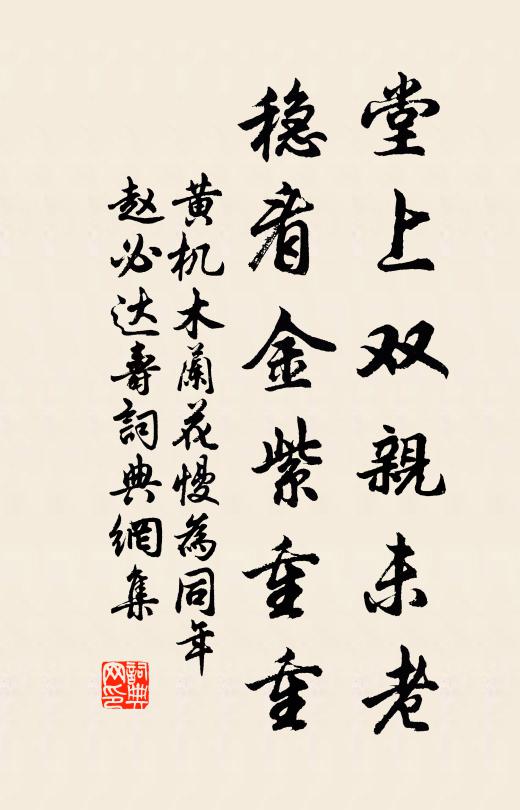 堂上双親未老
穏看金紫重重
黄机木蘭花慢為同年
赵必达壽詞典網集
詞典网印